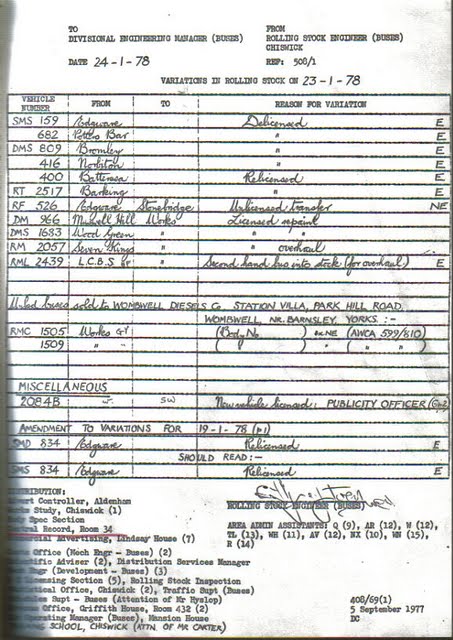 TO
DIVISIONAL ENGINEERING MANAGER (BUSES)
FROM
ROLLING STOCK ENGINEER (BUSES)
CHISWICK
DATE 24-1-78
REF: 508/1
VARIATIONS IN ROLLING STOCK ON 23-1-78
VEHICLE NUMBER FROM TO REASON FOR VARIATION
SMS 159 Edgware Delicensed E
682 Potters Bar " E
DMS 809 Bromley " E
416 Norbiton " E
400 Battersea Relicensed E
RT 2517 Barking " E
RF 526 Edgware Stonebridge Unlicensed transfer NE
DM 966 Muswell Hill Works Licensed repaint
DMS 1683 Wood Green " "
RM 2057 Seven Kings " " overhaul
RML 2439 L.C.B.S. Second hand bus into stock (for overhaul) E
buses sold to WOMBWELL DIESELS Co STATION VILLA, PARK HILL ROAD
WOMBWELL, NR. BARNSLEY, YORKS. :-
RMC 1505 Works (Body No ) NE (AWCA 599/810)
1509 " " ( " ) " ( " " )
MISCELLANEOUS
2084B SW New vehicle licensed: PUBLICITY OFFICER
AMENDMENT TO VARIATIONS FOR 19-1-78
SMD 834 Edgware Relicensed E
SHOULD READ:-
SMS 834 Edgware Relicensed E
DISTRIBUTION:
Controller, Aldenham
Study, Chiswick (1)
Spec Section
Record, Room 34
Advertising, Lindsay House (7)
Office (Mech Engr - Buses) (2)
Adviser (2), Distribution Services Manager
Engr (Development - Buses) (3)
Licensing Section (5), Rolling Stock Inspection
Office, Chiswick (2), Traffic Supt (Buses)
Supt - Buses (Attention of Mr Hyslop)
Office, Griffith House, Room 432 (2)
Operating Manager (Buses), Mansion House
SCHOOL, CHISWICK (ATTN. OF MR CARTER)
ROLLING STOCK ENGINEER (BUSES)
AREA ADMIN ASSISTANTS: Q (9), AR (12), W (12),
TL (13), WH (11), AV (12), NX (10), WN (15),
R (14)
408/69(1)
5 September 1977
DC